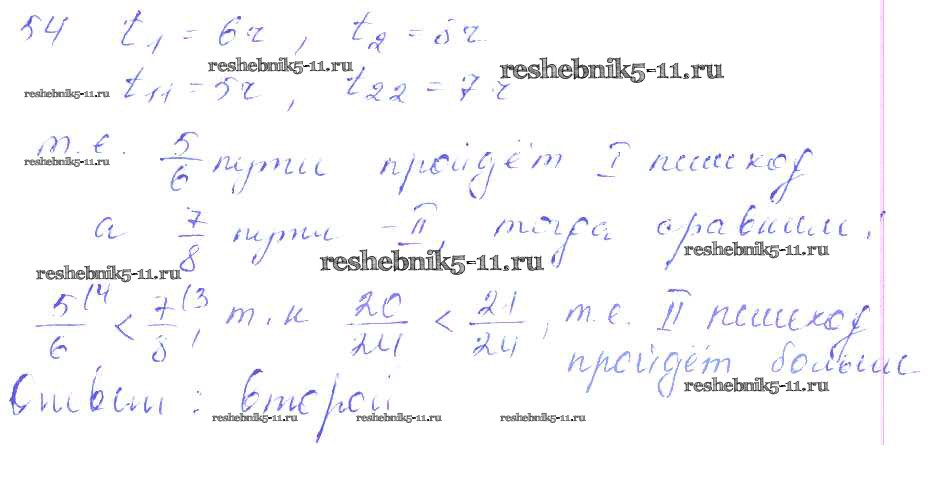 54 t₁ = 6ч, t₂ = 8ч
reshebnik5-11.ru reshebnik5-11.ru
reshebnik5-11.ru t₁₁ = 5ч, t₂₂ = 7ч
т.е. 5/6 пути пройдёт I пешеход
reshebnik5-11.ru
а 7/8 пути - II, тогда сравним:
reshebnik5-11.ru
reshebnik5-11.ru reshebnik5-11.ru
5/6 (4 < 7/8 (3, т.к 20/24 < 21/24, т.е. II пешеход
пройдёт больше
reshebnik5-11.ru
Ответ: второй
reshebnik5-11.ru reshebnik5-11.ru reshebnik5-11.ru